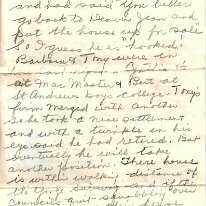 and had said "You better
go back to Jean and
put the house up for sale"
So I guess he is "hooked."
Barbara & Tony were in
last night. is
at Mac Master & Pat at
St Andrews Boys College. Tony's
firm merged with another
so he took a nice settlement
and with a twinkle in his
eye said he had retired, But
eventually he will take
another position. These house
is within walking distance of
the subway and if the
Council's quit squabbling over
house